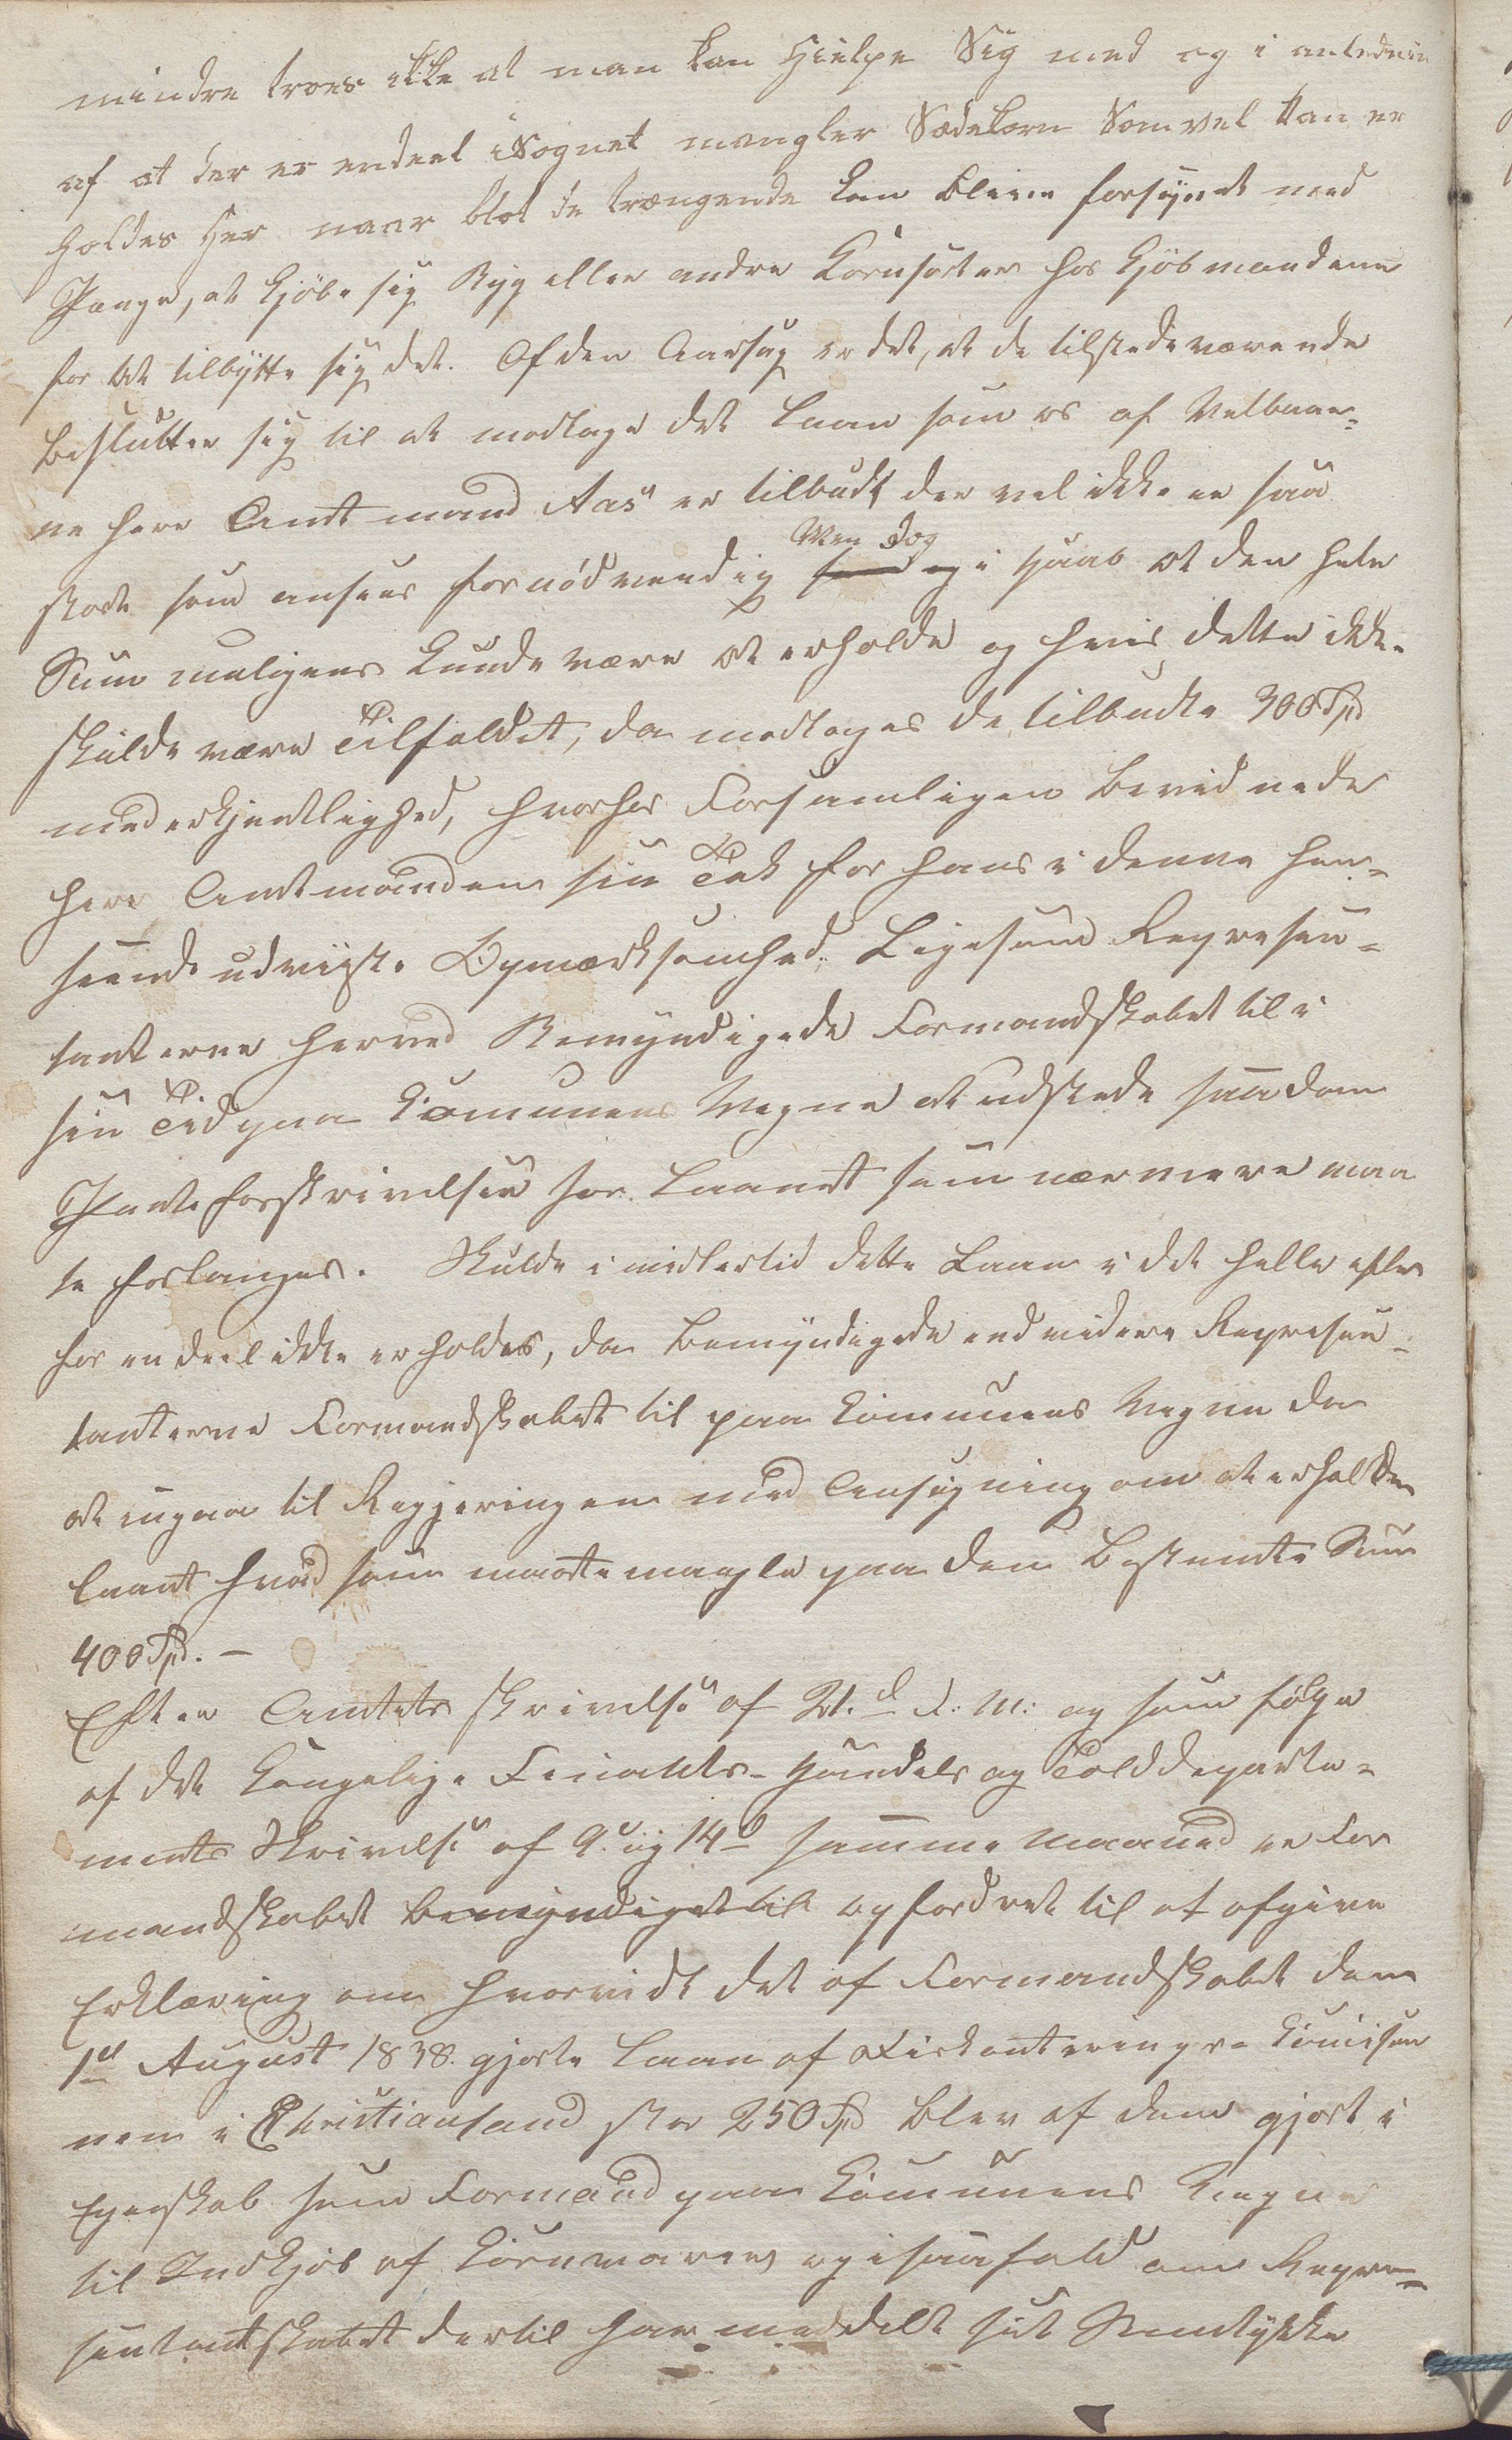 mindre troes ikke at man kan Hielpe Sig med og i anledning
af at der er endeel i Sognet mangler Sædekorn Som vel kan er
holdes Her naar blot de trængende kan blive forsynet med
Penge, at kjøbe sig Byg eller andre Kornsorter hos Kjøbmandene
for at tilbytte sig det. Af den Aarsag er det, at de tilstedeværende
beslutter sig til at modtage det Laan som os af Velbaar-
ne Herr Amtmand Aas er tilbudt der vel ikke er saa
stort som ansees fornødvendig Men dog i Haab at den hele
Sum muligens kunde være at erholde og hvis dette ikke
skulde være Tilfældet, da modtages de tilbudte 300 Spd
med erkjentlighed, hvorfor Forsamligen bevidnede
Herr Amtmanden sin Tak for hans i denne Hen-
seende udviste Opmærksomhed. Ligesom Represen-
tanterne herved Bemyndigede Formandskabet til i
sin Tid paa Communens Vegne at udstede saadan
Panteforskrivelsen for Laanet som nærmere maa
te forlanges. Skulde imidlertid dette Laan i det helle eller
for en deel ikke erholdes, da bemyndigede endvidere Represen-
tanterne Formandskabet til paa Communens Vegne da
at ingaa til Regjeringen med Ansøgning om at erholde
laant hvad som maatte mangle paa den Bestemte Sum
400 Spd. –
Efter Amtets skrivelse af 21.d d: M: og som følge
af det Kongelige Finants- Handels og Told departe-
ments Skrivelse af 9. og 14d samme Maaned er For
mandskabet bemyndiget til opfordret til at afgive
Erklæring om hvorvidt det af Formandskabet den
1st August 1838. gjorte Laan af Diskonterings Comisio
nen i Christiansand stor 250 Spd blev af dem gjort i
Egenskab som Formænd paa Communens Vegne
til Indkjøb af Kornvarer, og isaafald om Repre-
sentantskabet dertil har meddelt sit Samtykke